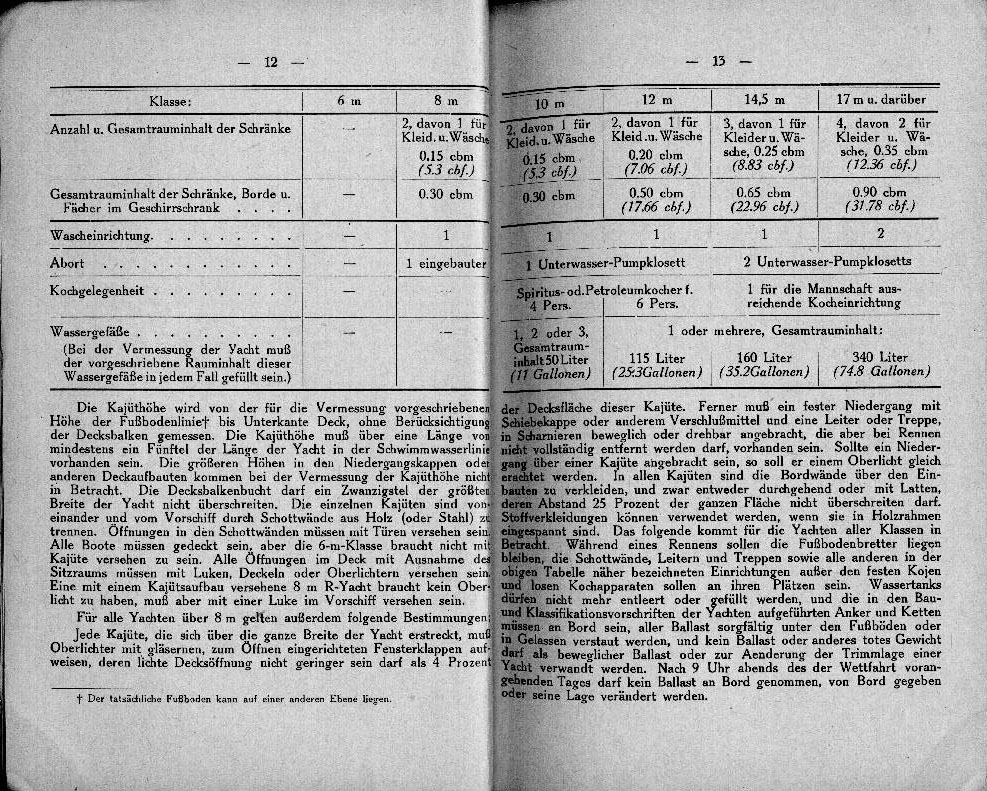 — 12 —
Klasse: 6 m 8 m
Anzahl u. Gesamtrauminhalt der Schränke — 2, davon 1 für
Kleid. u. Wäsche
0.15 cbm
(5.3 cbf.)
Gesamtrauminhalt der Schränke, Borde u. — 0.30 cbm
Fächer im Geschirrschrank . . . .
Wascheinrichtung. . . . . . . . . — 1
Abort . . . . . . . . . . . . — 1 eingebauter
Kochgelegenheit . . . . . . . . . — —
Wassergefäße . . . . . . . . . . — —
(Bei der Vermessung der Yacht muß
der vorgeschriebene Rauminhalt dieser
Wassergefäße in jedem Fall gefüllt sein.)
Die Kajüthöhe wird von der für die Vermessung vorgeschriebenen
Höhe der Fußbodenlinie† bis Unterkante Deck, ohne Berücksichtigung
der Decksbalken gemessen. Die Kajüthöhe muß über eine Länge von
mindestens ein Fünftel der Länge der Yacht in der Schwimmwasserlinie
vorhanden sein. Die größeren Höhen in den Niedergangskappen oder
anderen Deckaufbauten kommen bei der Vermessung der Kajüthöhe nicht
in Betracht. Die Decksbalkenbucht darf ein Zwanzigstel der größten
Breite der Yacht nicht überschreiten. Die einzelnen Kajüten sind von-
einander und vom Vorschiff durch Schottwände aus Holz (oder Stahl) zu
trennen. Öffnungen in den Schottwänden müssen mit Türen versehen sein.
Alle Boote müssen gedeckt sein, aber die 6-m-Klasse braucht nicht mit
Kajüte versehen zu sein. Alle Öffnungen im Deck mit Ausnahme des
Sitzraums müssen mit Luken, Deckeln oder Oberlichtern versehen sein.
Eine mit einem Kajütsaufbau versehene 8 m R-Yacht braucht kein Ober-
licht zu haben, muß aber mit einer Luke im Vorschiff versehen sein.
Für alle Yachten über 8 m gelten außerdem folgende Bestimmungen:
Jede Kajüte, die sich über die ganze Breite der Yacht erstreckt, muß
Oberlichter mit gläsernen, zum Öffnen eingerichteten Fensterklappen auf-
weisen, deren lichte Decksöffnung nicht geringer sein darf als 4 Prozent
† Der tatsächliche Fußboden kann auf einer anderen Ebene liegen.
— 13 —
10 m 12 m 14,5 m 17 m u. darüber
2, davon 1 für 2, davon 1 für 3, davon 1 für 4, davon 2 für
Kleid. u. Wäsche Kleid .u. Wäsche Kleider u. Wä- Kleider u. Wä-
0.15 cbm 0.20 cbm sche, 0.25 cbm sche, 0.35 cbm
(5.3 cbf.) (7.06 cbf.) (8.83 cbf.) (12.36 cbf.)
0.30 cbm 0.50 cbm 0.65 cbm 0.90 cbm
(17.66 cbf.) (22.96 cbf.) (31.78 cbf.)
1 1 1 2
1 Unterwasser-Pumpklosett 2 Unterwasser-Pumpklosetts
Spiritus- od. Petroleumkocher f. 1 für die Mannschaft aus-
4 Pers. 6 Pers. reichende Kocheinrichtung
1, 2 oder 3, 1 oder mehrere, Gesamtrauminhalt:
Gesamtraum-
inhalt 50 Liter 115 Liter 160 Liter 340 Liter
(11 Gallonen) (25:3Gallonen) (35.2Gallonen) (74.8 Gallonen)
der Decksfläche dieser Kajüte. Ferner muß ein fester Niedergang mit
Schiebekappe oder anderem Verschlußmittel und eine Leiter oder Treppe,
in Scharnieren beweglich oder drehbar angebracht, die aber bei Rennen
nicht vollständig entfernt werden darf, vorhanden sein. Sollte ein Nieder-
gang über einer Kajüte angebracht sein, so soll er einem Oberlicht gleich
erachtet werden. In allen Kajüten sind die Bordwände über den Ein-
bauten zu verkleiden, und zwar entweder durchgehend oder mit Latten,
deren Abstand 25 Prozent der ganzen Fläche nicht überschreiten darf.
Stoffverkleidungen können verwendet werden, wenn sie in Holzrahmen
eingespannt sind. Das folgende kommt für die Yachten aller Klassen in
Betracht. Während eines Rennens sollen die Fußbodenbretter liegen
bleiben, die Schottwände, Leitern und Treppen sowie alle anderen in der
obigen Tabelle näher bezeichneten Einrichtungen außer den festen Kojen
und losen Kochapparaten sollen an ihren Plätzen sein. Wassertanks
dürfen nicht mehr entleert oder gefüllt werden, und die in den Bau-
und Klassifikationsvorschriften der Yachten aufgeführten Anker und Ketten
müssen an Bord sein, aller Ballast sorgfältig unter den Fußböden oder
in Gelassen verstaut werden, und kein Ballast oder anderes totes Gewicht
darf als beweglicher Ballast oder zur Aenderung der Trimmlage einer
Yacht verwandt werden. Nach 9 Uhr abends des der Wettfahrt voran-
gehenden Tages darf kein Ballast an Bord genommen, von Bord gegeben
oder seine Lage verändert werden.